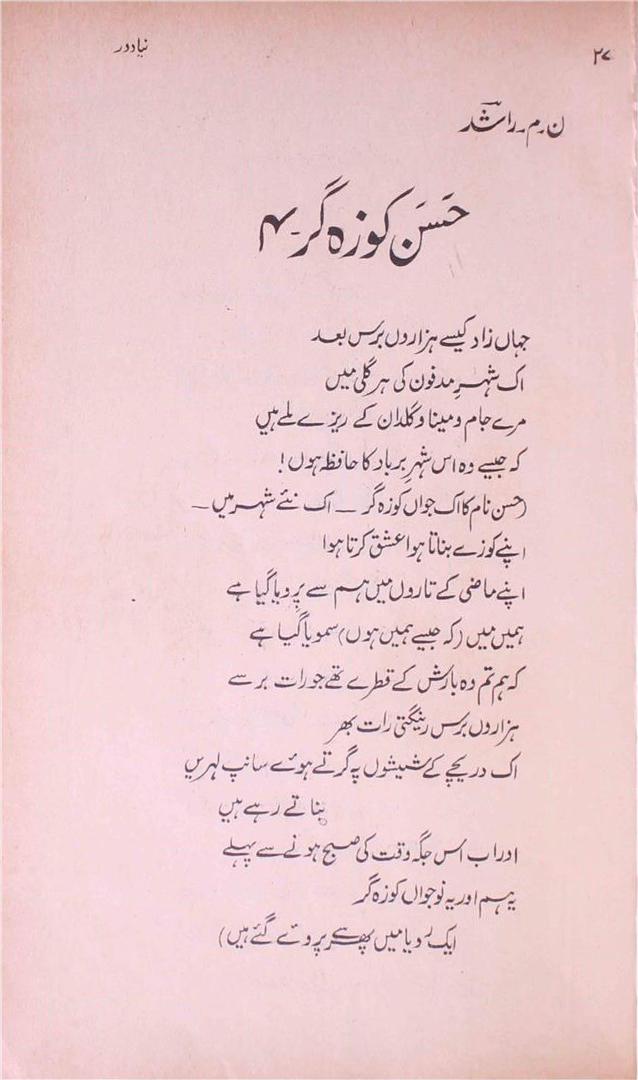 ۲۷
نیا دور
ن۔م۔راشد
حَسَن کوزہ گر۔۴
جہاں زاد کیسے ہزاروں برس بعد
اک شہرِ مدفون کی ہر گلی میں
مرے جام و مینا و گلدان کے ریزے ملے ہیں
کہ جیسے وہ اس شہرِ برباد کا حافظہ ہوں!
(حسن نام کا اک جواں کوزہ گر ــ اک نئے شہر میں ــ
اپنے کوزے بناتا ہوا عشق کرتا ہوا
اپنے ماضی کے تاروں میں ہم سے پرویا گیا ہے
ہمیں میں (کہ جیسے ہمیں ہوں) سمویا گیا ہے
کہ ہم تم وہ بارش کے قطرے تھے جو رات بر سے
ہزاروں برس رینگتی رات بھر
اک دریچے کے شیشوں پہ گرتے ہوئے سانپ لہریں
بناتے رہے ہیں
اور اب اس جگہ وقت کی صبح ہونے سے پہلے
یہ ہم اور یہ نوجواں کوزہ گر
ایک رُویا میں پھر سے پروئے گئے ہیں)